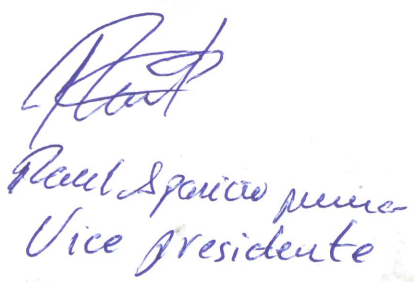 Raul Aparicio
Vice presidente